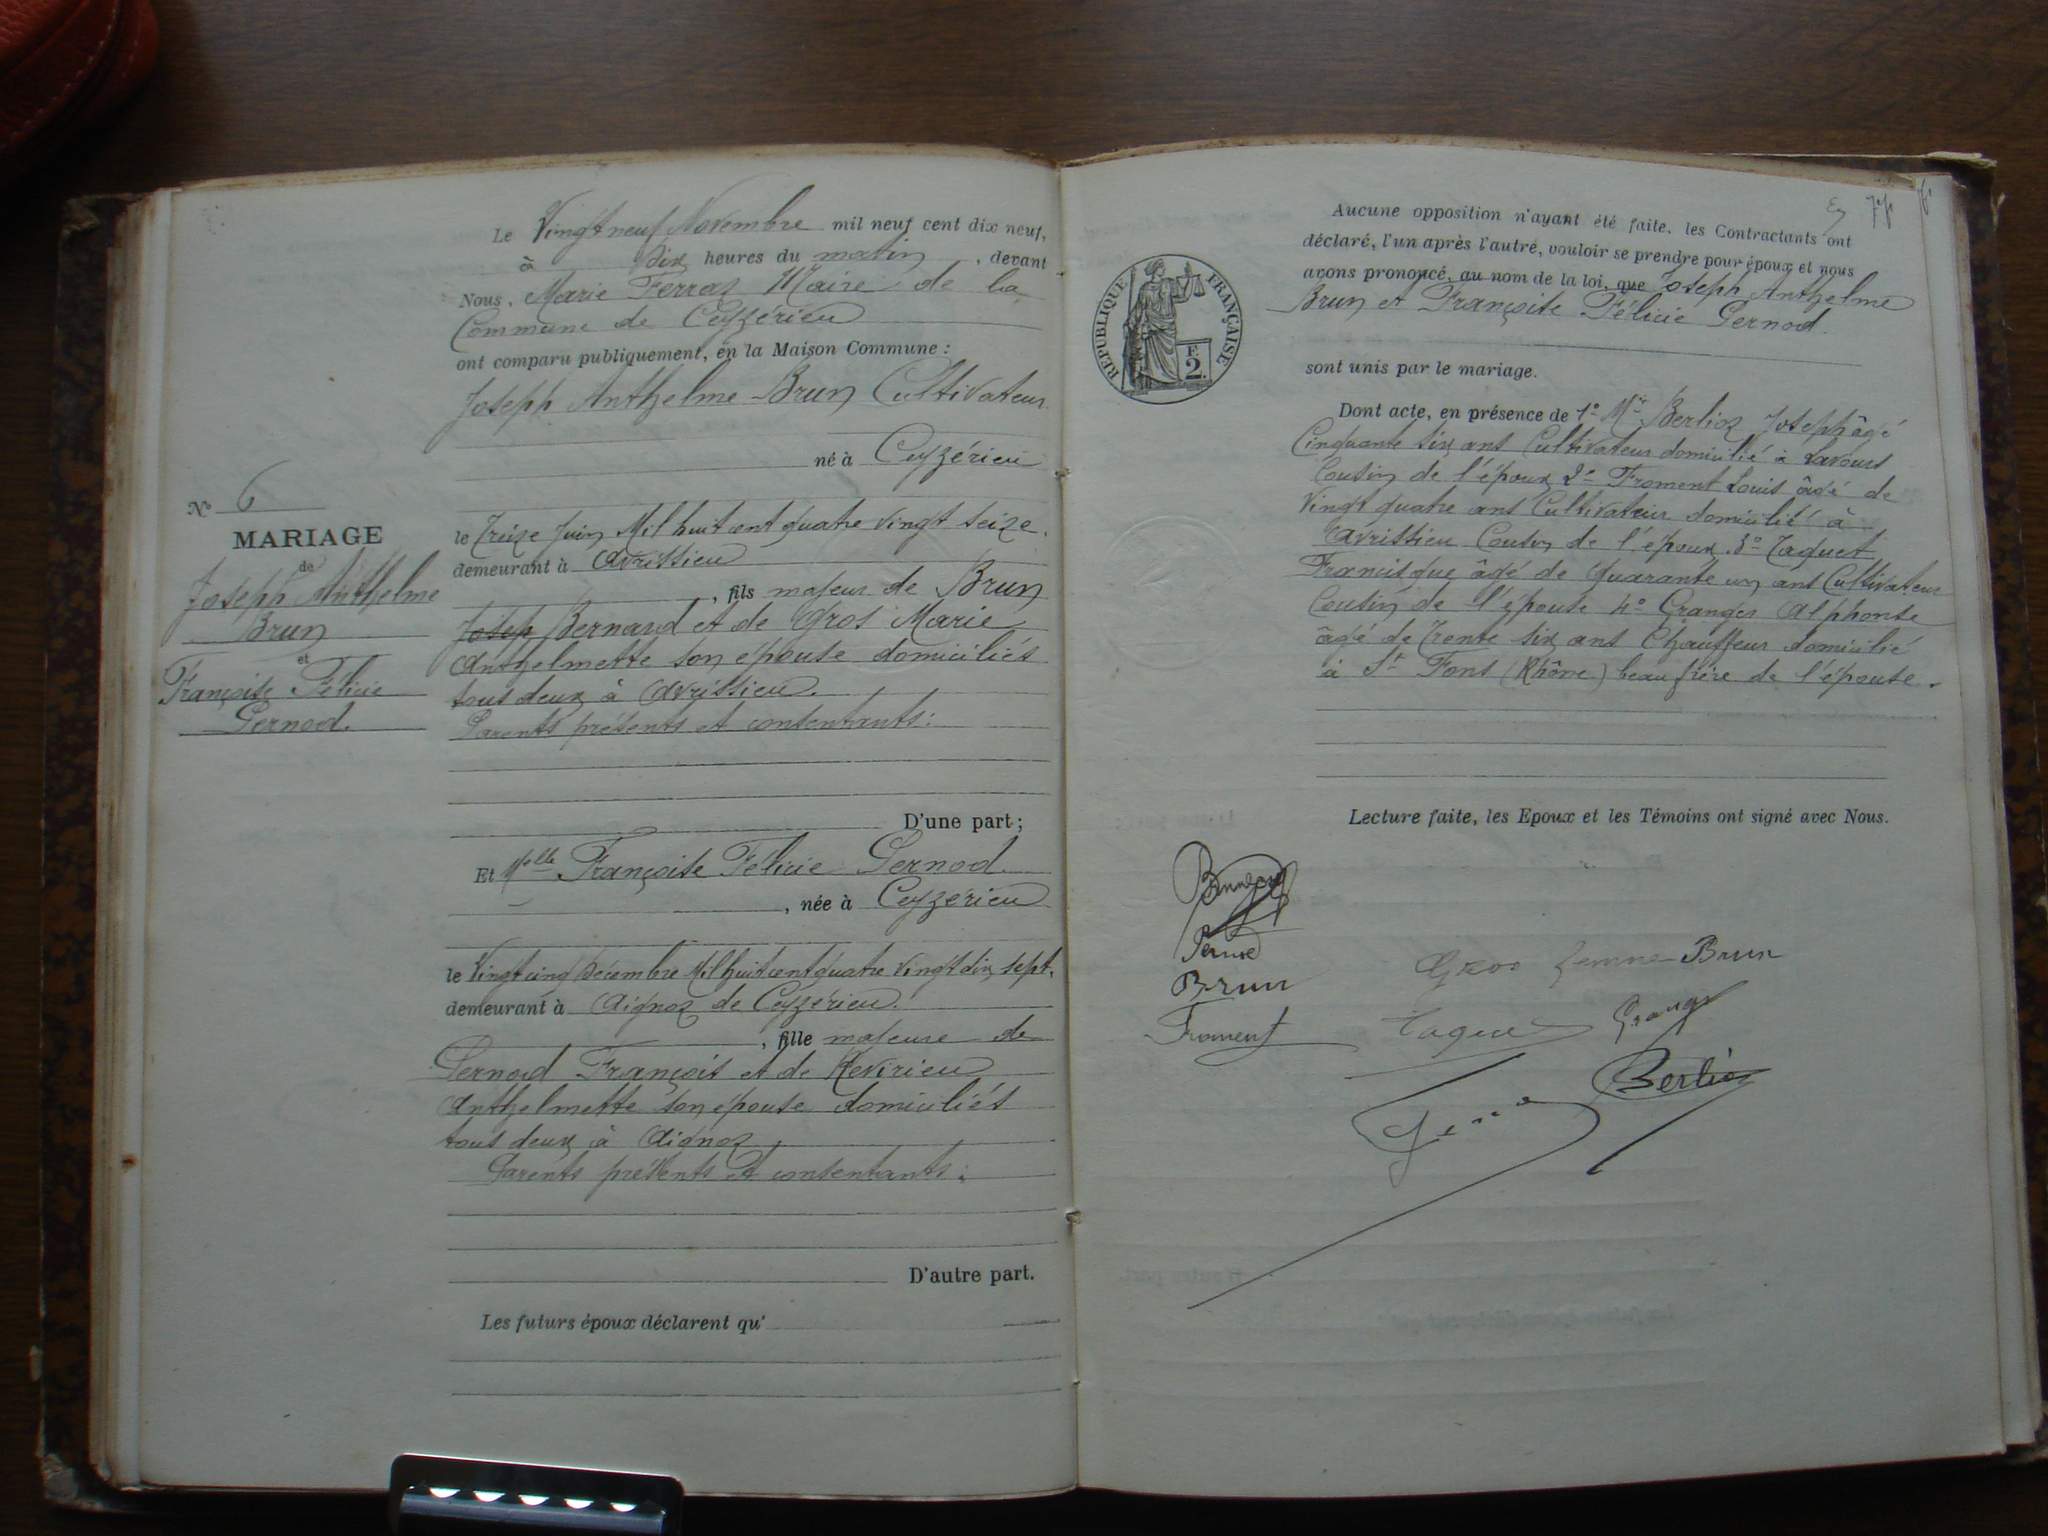 Le Vingt neuf Novembre mil neuf cent dix neuf,
à Dix heures du matin, devant
Nous, Marie Ferraz Maire de la
Commune de Ceyzérieu
ont comparu publiquement, en la Maison Commune :
Joseph Anthelme Brun Cultivateur
né à Ceyzérieu
le Treize Juin Mil huit cent quatre vingt seize.
demeurant à Avrissieu
, fils majeur de Brun
Josep Bernard et de Gros Marie
Anthelmette son épouse domiciliés
tous deux à Avrissieu.
Parents présents et consentants :
D'une part ;
Et Melle Françoise Félicie Pernod
, née à Ceyzérieu
le Vingt cinq Décembre Mil huit cent quatre vingt dix sept.
demeurant à Aignoz de Ceyzérieu.
, fille majeure de
Pernod François et de Revirieu
Anthelmette son épouse domiciliés
tous deux à Aignoz
Parents présents et consentants :
D'autre part.
Les futurs époux déclarent qu'
No 6
MARIAGE
de
Joseph Anthelme
Brun
et
Françoise Félicie
Pernod.
Aucune opposition n'ayant été faite, les Contractants ont
déclaré, l'un après l'autre, vouloir se prendre pour époux et nous
avons prononcé, au nom de la loi, que Joseph Anthelme
Brun et Françoise Félicie Pernod.
sont unis par le mariage.
RÉPUBLIQUE FRANÇAISE
F.
2.
Dont acte, en présence de 1º Mr Berlioz Joseph âgé
Cinquante six ans Cultivateur domicilié à Lavours
Cousin de l'époux 2º Froment Louis âgé de
Vingt quatre ans Cultivateur domicilié à
Avrissieu Cousin de l'époux. 3º Taquet
Francisque âgé de quarante un ans Cultivateur
Cousin de l'épouse 4º Granger Alphonse
âgé de Trente six ans Chauffeur domicilié
à St Fons (Rhône) beau frère de l'épouse.
Lecture faite, les Epoux et les Témoins ont signé avec Nous.
Brun
Froment
femme Brun
Berlioz